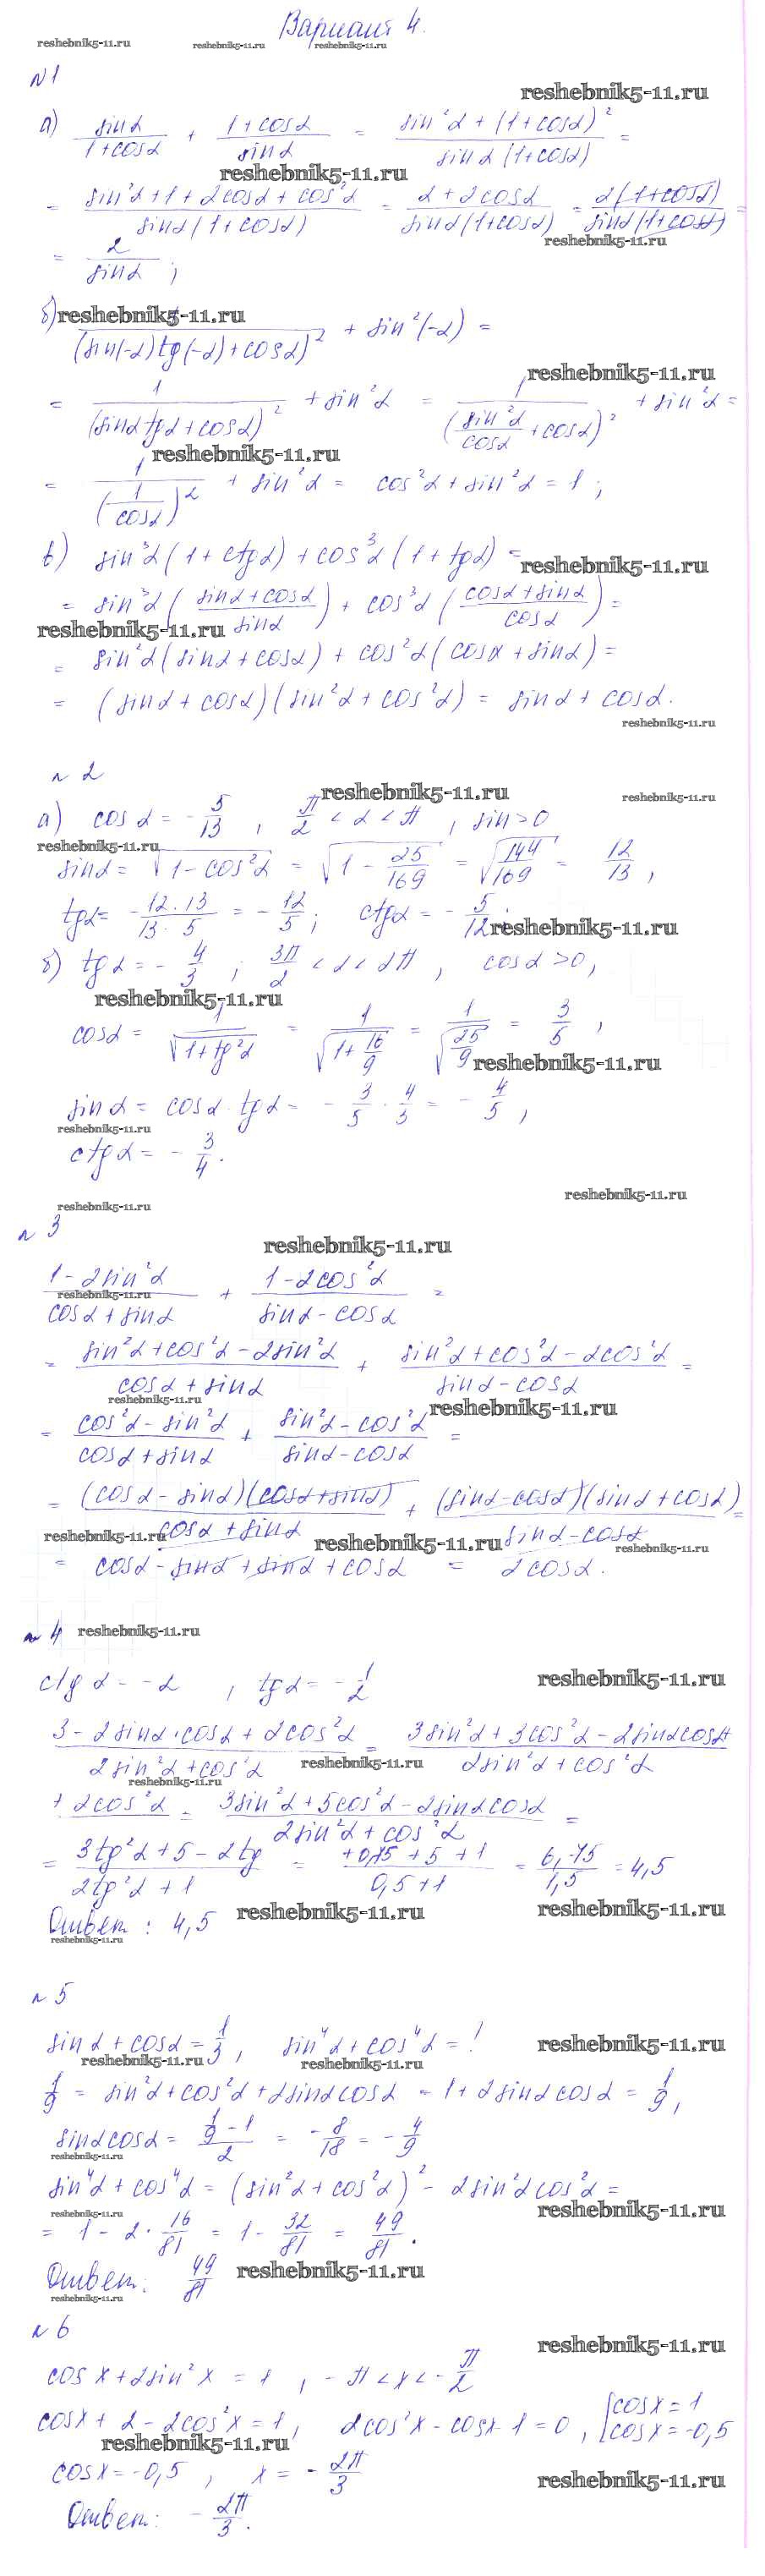 Вариант 4.
reshebnik5-11.ru reshebnik5-11.ru reshebnik5-11.ru
№1
reshebnik5-11.ru
а) sinα/(1+cosα) + (1+cosα)/sinα = (sin²α + (1+cosα)²)/(sinα(1+cosα)) =
reshebnik5-11.ru
= (sin²α+1+2cosα+cos²α)/(sinα(1+cosα)) = (2+2cosα)/(sinα(1+cosα)) = 2(1+cosα)/(sinα(1+cosα)) =
reshebnik5-11.ru
= 2/sinα ;
б) reshebnik5-11.ru
/(sin(-α)tg(-α)+cosα)² + sin²(-α) =
reshebnik5-11.ru
= 1/(sinα tgα+cosα)² + sin²α = 1/(sin²α/cosα + cosα)² + sin²α =
reshebnik5-11.ru
= 1/(1/cosα)² + sin²α = cos²α + sin²α = 1 ;
в) sin³α(1+ctgα) + cos³α(1+tgα) =
reshebnik5-11.ru
= sin³α((sinα+cosα)/sinα) + cos³α((cosα+sinα)/cosα) =
reshebnik5-11.ru
= sin²α(sinα+cosα) + cos²α(cosα+sinα) =
= (sinα+cosα)(sin²α+cos²α) = sinα+cosα.
reshebnik5-11.ru
№2
reshebnik5-11.ru reshebnik5-11.ru
а) cosα = -5/13 , π/2 < α < π , sin>0
reshebnik5-11.ru
sinα = √(1-cos²α) = √(1-25/169) = √(144/169) = 12/13 ,
tgα = -(12·13)/(13·5) = -12/5 ; ctgα = -5/12
reshebnik5-11.ru
б) tgα = -4/3 ; 3π/2 < α < 2π , cosα>0,
reshebnik5-11.ru
cosα = 1/√(1+tg²α) = 1/√(1+16/9) = 1/√(25/9) = 3/5 ,
reshebnik5-11.ru
sinα = cosα·tgα = -3/5·4/3 = -4/5 ,
reshebnik5-11.ru
ctgα = -3/4.
reshebnik5-11.ru reshebnik5-11.ru
№3
reshebnik5-11.ru
(1-2sin²α)/(cosα+sinα) + (1-2cos²α)/(sinα-cosα) =
reshebnik5-11.ru
= (sin²α+cos²α-2sin²α)/(cosα+sinα) + (sin²α+cos²α-2cos²α)/(sinα-cosα) =
reshebnik5-11.ru reshebnik5-11.ru
= (cos²α-sin²α)/(cosα+sinα) + (sin²α-cos²α)/(sinα-cosα) =
= (cosα-sinα)(cosα+sinα)/(cosα+sinα) + (sinα-cosα)(sinα+cosα)/(sinα-cosα) =
reshebnik5-11.ru reshebnik5-11.ru reshebnik5-11.ru
= cosα-sinα+sinα+cosα = 2cosα.
№4 reshebnik5-11.ru
ctgα = -2 , tgα = -1/2
reshebnik5-11.ru
(3-2sinα·cosα+2cos²α)/(2sin²α+cos²α) = (3sin²α+3cos²α-2sinαcosα+
reshebnik5-11.ru
2sin²α+cos²α
reshebnik5-11.ru
+2cos²α = (3sin²α+5cos²α-2sinαcosα)/(2sin²α+cos²α) =
= (3tg²α+5-2tg)/(2tg²α+1) = (+0,75+5+1)/(0,5+1) = 6,75/1,5 = 4,5
Ответ: 4,5
reshebnik5-11.ru reshebnik5-11.ru
reshebnik5-11.ru
№5
sinα+cosα = 1/3 , sin⁴α+cos⁴α = ?
reshebnik5-11.ru reshebnik5-11.ru reshebnik5-11.ru
1/9 = sin²α+cos²α+2sinαcosα = 1+2sinαcosα = 1/9 ,
sinαcosα = (1/9-1)/2 = -8/18 = -4/9
reshebnik5-11.ru
sin⁴α+cos⁴α = (sin²α+cos²α)² - 2sin²αcos²α =
reshebnik5-11.ru reshebnik5-11.ru
= 1-2·16/81 = 1-32/81 = 49/81.
Ответ: 49/81
reshebnik5-11.ru
reshebnik5-11.ru
№6
reshebnik5-11.ru
cosx+2sin²x = 1 , -π<x<-π/2
cosx+2-2cos²x=1, 2cos²x-cosx-1=0, [cosx=1
cosx=-0,5
reshebnik5-11.ru
cosx=-0,5 , x = -2π/3
reshebnik5-11.ru
Ответ: -2π/3.